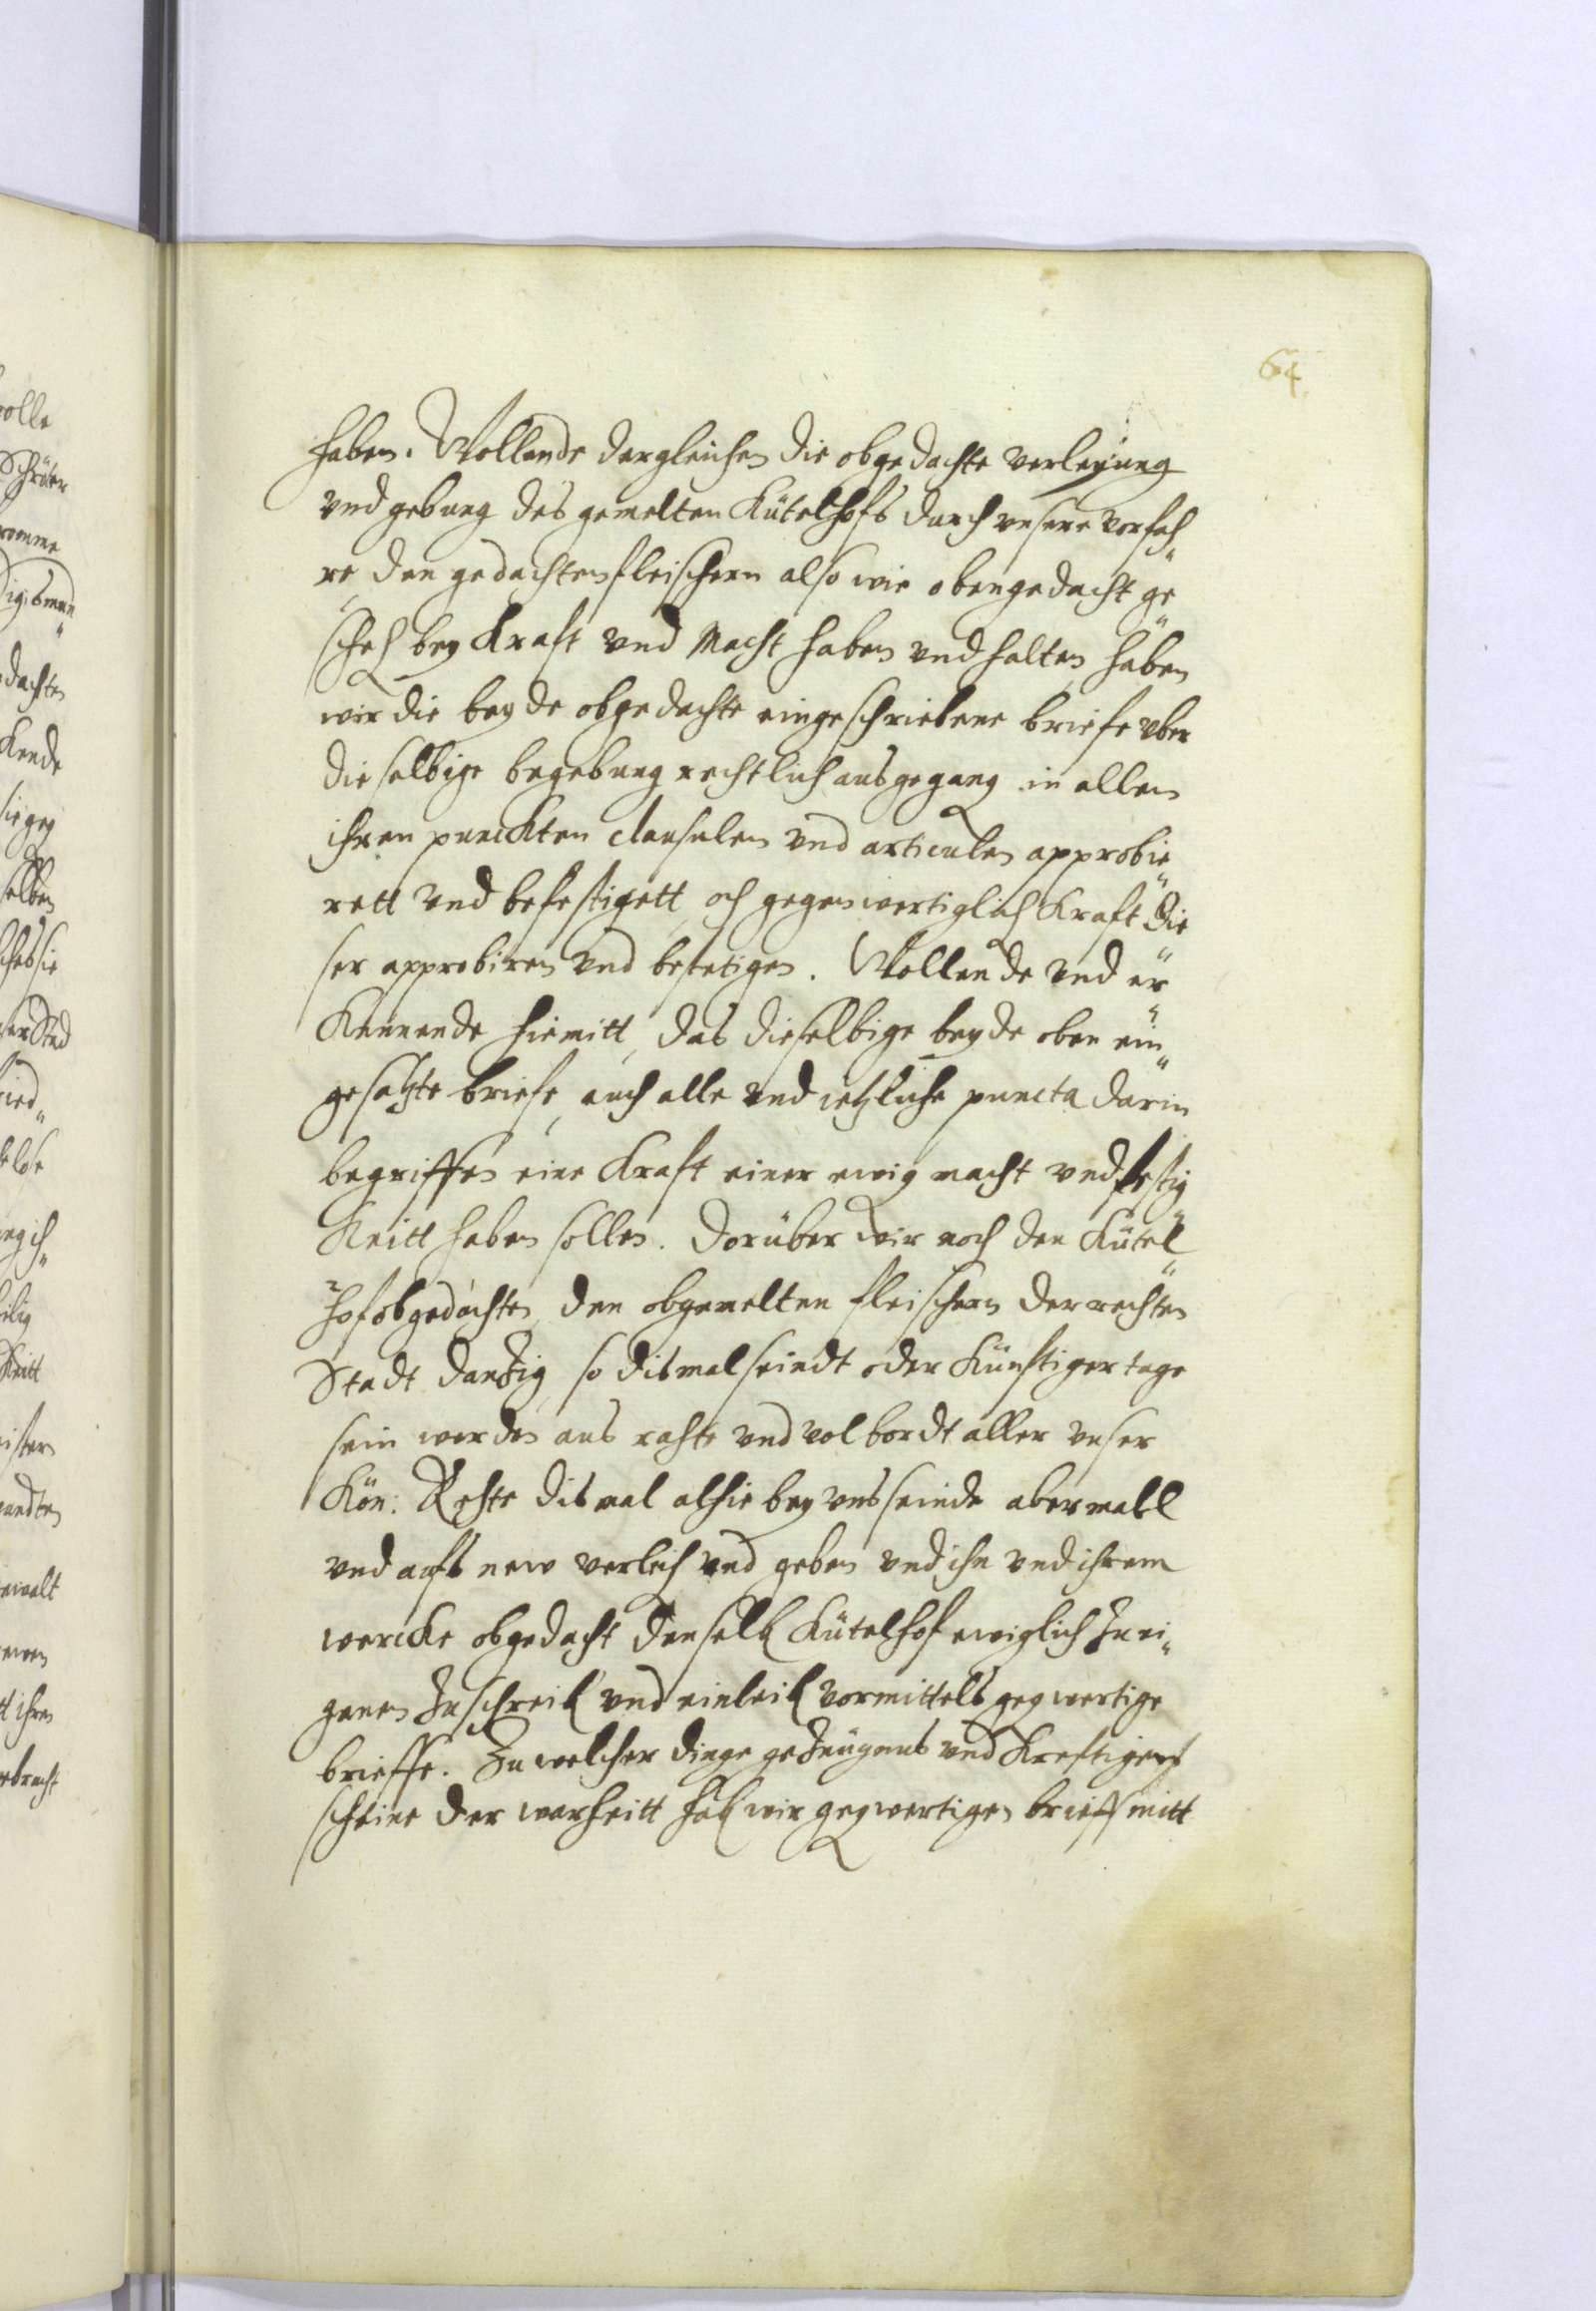 64
haben. Wollende dergleichen die obgedachte verleyung
vnd gebung des gemelten Kütelhofs durch vnsere vorfah„
re, den gedachten fleischern also wie oben gedacht ge„
scheh bey Kraft vnd Macht haben vnd halten haben
wir die beyde obgedachte eingeschriebene briefe vber
dieselbige begebung rechtlich ausgegang in allen
ihren punckten clauselen vnd articulen approbie„
rett vnd befestigett, och gegenwertiglich Kraft die„
ser approbiren vnd bestetigen. Wollende vnd er„
kennende hiemitt, das dieselbige beyde oben ein„
gesatzte briefe, auch alle vnd ietzliche puncta darin
begriffen eine Kraft einer ewig macht vnd festig„
Keitt haben sollen. Dorüber wir noch den Kütel„
hof obgedachte, den obgemelten fleischern der rechten
Stadt Dantzig, so dismal seindt oder Künftiger tage
sein werden aus rahte vnd volbordt aller vnser
Kön: Rehte dismal alhie bey vns seinde abermall
vnd aufs new verleih vnd geben vnd ihn vnd ihrem
wercke obgedacht denselb Kütelhof ewiglich zu ei„
genen zuschreib vnd einleib vormittels gegwertige
brieffe. Zu welcher dinge gezeugnus vnd Kreftigem
scheine der warheitt hab wir gegwertigen brieff mitt
olle
dachten
Kende
selben
ilig
Keitt
ewalt
t ihren
ebracht